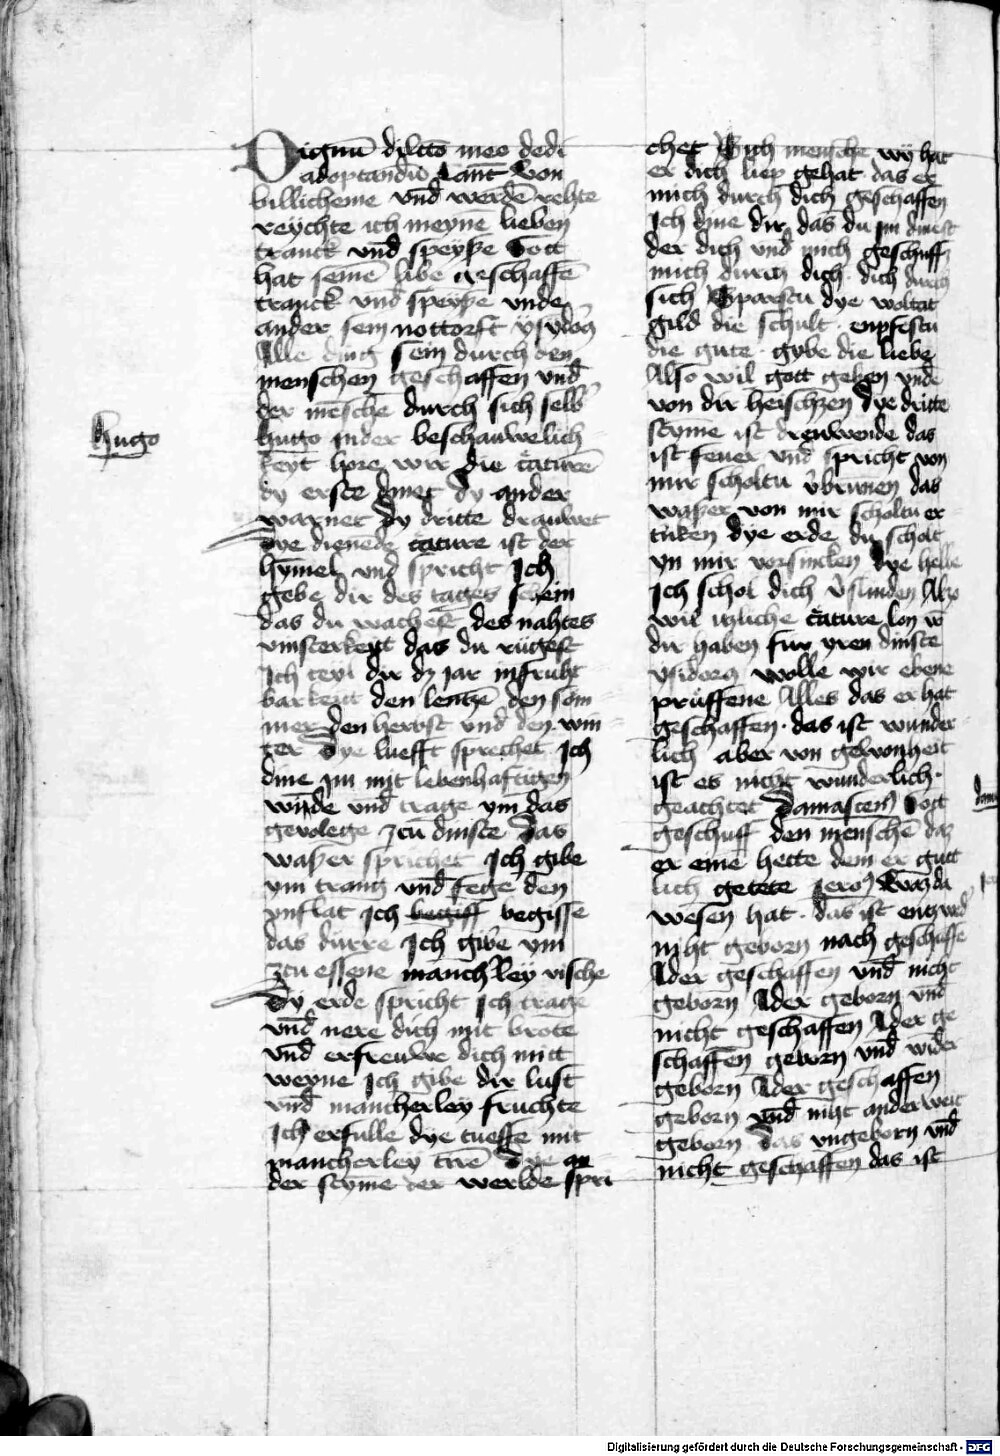 Dignū dilcto meo dedi
adoptandū kant von
billicheme vnd̄ werdē rehte
reychte ich meynē lieben
tranck vnd̄ speyße Gott
hat seinē libe geschaffē
tranck vnd̄ speyße vnde
ander sein nottorft ysydor9
Alle ding sein durch den
menschen geschaffen vnd̄
der mēsche durch sich selb
hugo jnder beschauwelich
keyt hore wir die c̄aturē
dy erste dinet dy ander
warnet dy dritte drauwet
Dye dienēde c̄ature ist der
hymel vnd spricht Ich
gebe dir des tages schein
das du wachest des nahtes
vinsterkeyt das du rügest
Ich teyl dir dy jar in frucht
barkeyt den lentzē den som
mer den herbst vnd den win
ter Dye luefft sprechet Ich
dine jm mit lebenhaftigen
winde vnd̄ trage ym das
gevolege zcu dinste Das
waßer sprichet Ich gibe
ym trang vnd̄ fege den
vnflat Ich begiff begisse
das dürre Ich gibe ym
zcu essene manch ley vische
Dy erde spricht Ich trage
vnd̄ nere dich mit brote
vnd̄ erfreuwe dich mitt
weyne Ich gibe dir lust
vnd̄ mancherley fruchte
Ich erfulle dye tueffe mit
mancherley tirē Dye an
der styme der werlde spri
Hugo
chet Sich mensche wy hat
er dich liep gehat das er
mich durch dich geschaffen
Ich dine dir das du jm dinest
der dich vnd mich geschuff
mich durch dich dich durch
sich Sparestu dye woltat
gild die schult enpfestu
die gute gybe die liebe
Also wil gott geben vnde
von dir heischzen Dye dritte
styme ist dreuwende das
ist feuer vnd spricht von
mir scholtu v̄brinnen das
waßer von mir scholtu er
tricken dye erde du scholt
yn mir vorsincken Dye helle
Ich schol dich v̄slinden Also
wil itzliche c̄ature lon vō
dir haben fur yren dinste
ysidor9 wolle wir ebene
prüffene Alles das er hat
geschaffen das ist wunder
lich aber von gewonheit
ist es nicht wunderlich
geachtet Damascen9 Gott
geschuff den menschē daz
er eine hette dem er gutt
lich getete
wesen hat Das ist entzwed
niht geborn nach geschaffē
Ader geschaffen vnd̄ nicht
geborn Ader geborn vnd̄
nicht geschaffen Ader ge
schaffen geborn vnd̄ wider
geborn Ader geschaffen
geborn vnd̄ niht anderweit
geborn Das vngeborn vnd̄
nicht geschaffen das ist
Digitalisierung gefördert durch die Deutsche Forschungsgemeinschaft - DFG